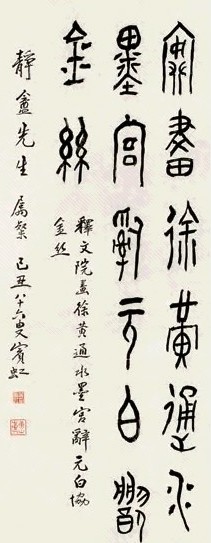 院畫徐黃通水
墨宮辭元白協
金絲
釋文院画徐黃通水墨宮辭元白協
金丝
靜盦先生 屬粲 己丑八十六叟賓虹